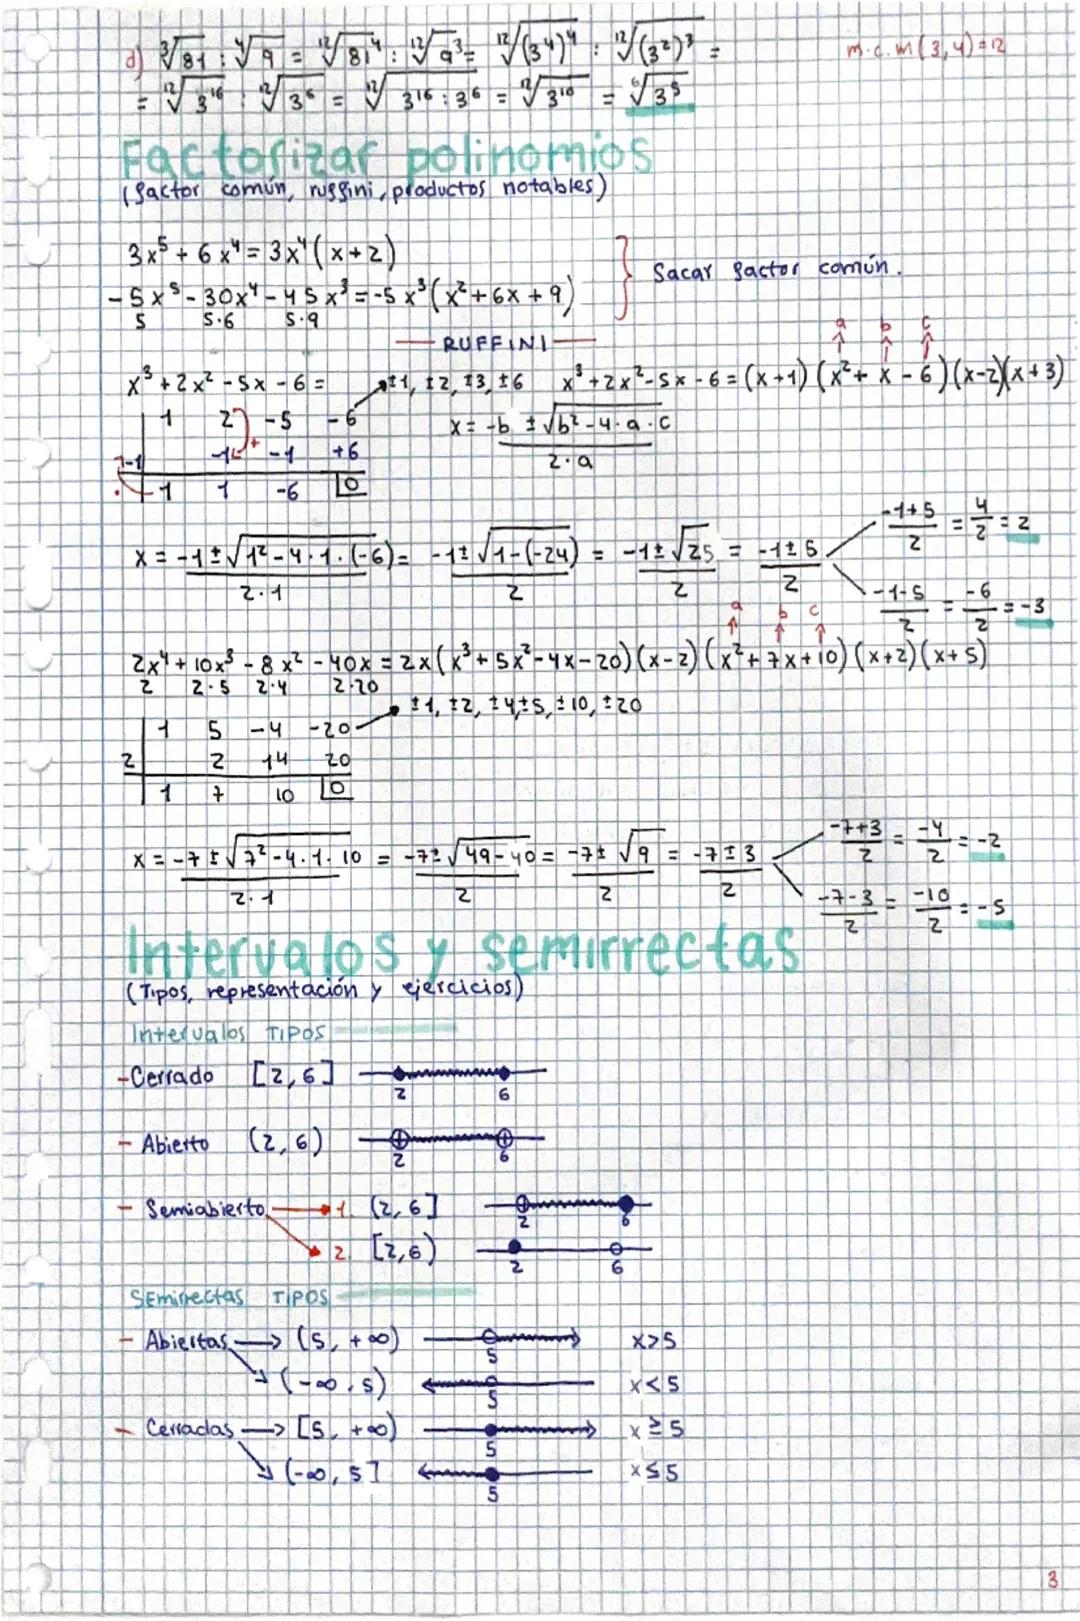 d) ∛81 : ∜9 = ¹²√81⁴ : ¹²√9³ = ¹²√(3⁴)⁴ : ¹²√(3²)³ = m.c.m(3,4)=12
= ¹²√3¹⁶ : ¹²√3⁶ = ¹²√3¹⁶:3⁶ = ¹²√3¹⁰ = ⁶√3⁵
Factorizar polinomios
(factor común, ruffini, productos notables)
3x⁵ + 6x⁴ = 3x⁴(x+2)
Sacar factor común.
-5x⁵ - 30x⁴ - 45x³ = -5x³(x²+6x+9)
5 5·6 5·9
RUFFINI
a b c
x³ + 2x² - 5x - 6 = ±1, ±2, ±3, ±6 x³+2x²-5x-6 = (x+1)(x²+x-6)(x-2)(x+3)
1 2 -5 -6 x = -b ± √b²-4·a·c
+
-1 -1 -1 +6 2·a
· 1 1 -6 0
-1+5 = 4 = 2
2 2
x = -1±√1²-4·1·(-6) = -1±√1-(-24) = -1±√25 = -1±5
2·1 2 2 2
-1-5 = -6 = -3
2 2
a b c
2x⁴ + 10x³ - 8x² - 40x = 2x(x³+5x²-4x-20)(x-2)(x²+7x+10)(x+2)(x+5)
2 2·5 2·4 2·20
±1, ±2, ±4, ±5, ±10, ±20
1 5 -4 -20
2 2 14 20
1 7 10 0
-7+3 = -4 = -2
2 2
x = -7±√7²-4·1·10 = -7±√49-40 = -7±√9 = -7±3
2·1 2 2 2
-7-3 = -10 = -5
2 2
Intervalos y semirrectas
(Tipos, representación y ejercicios)
Intervalos TIPOS
-Cerrado [2,6]
2 6
- Abierto (2,6)
2 6
- Semiabierto 1. (2,6]
2 6
2. [2,6)
2 6
SEmirrectas TIPOS
- Abiertas → (5, +∞) 5 x>5
(-∞, 5) 5 x<5
- Cerradas → [5, +∞) 5 x≥5
(-∞, 5] 5 x≤5
3